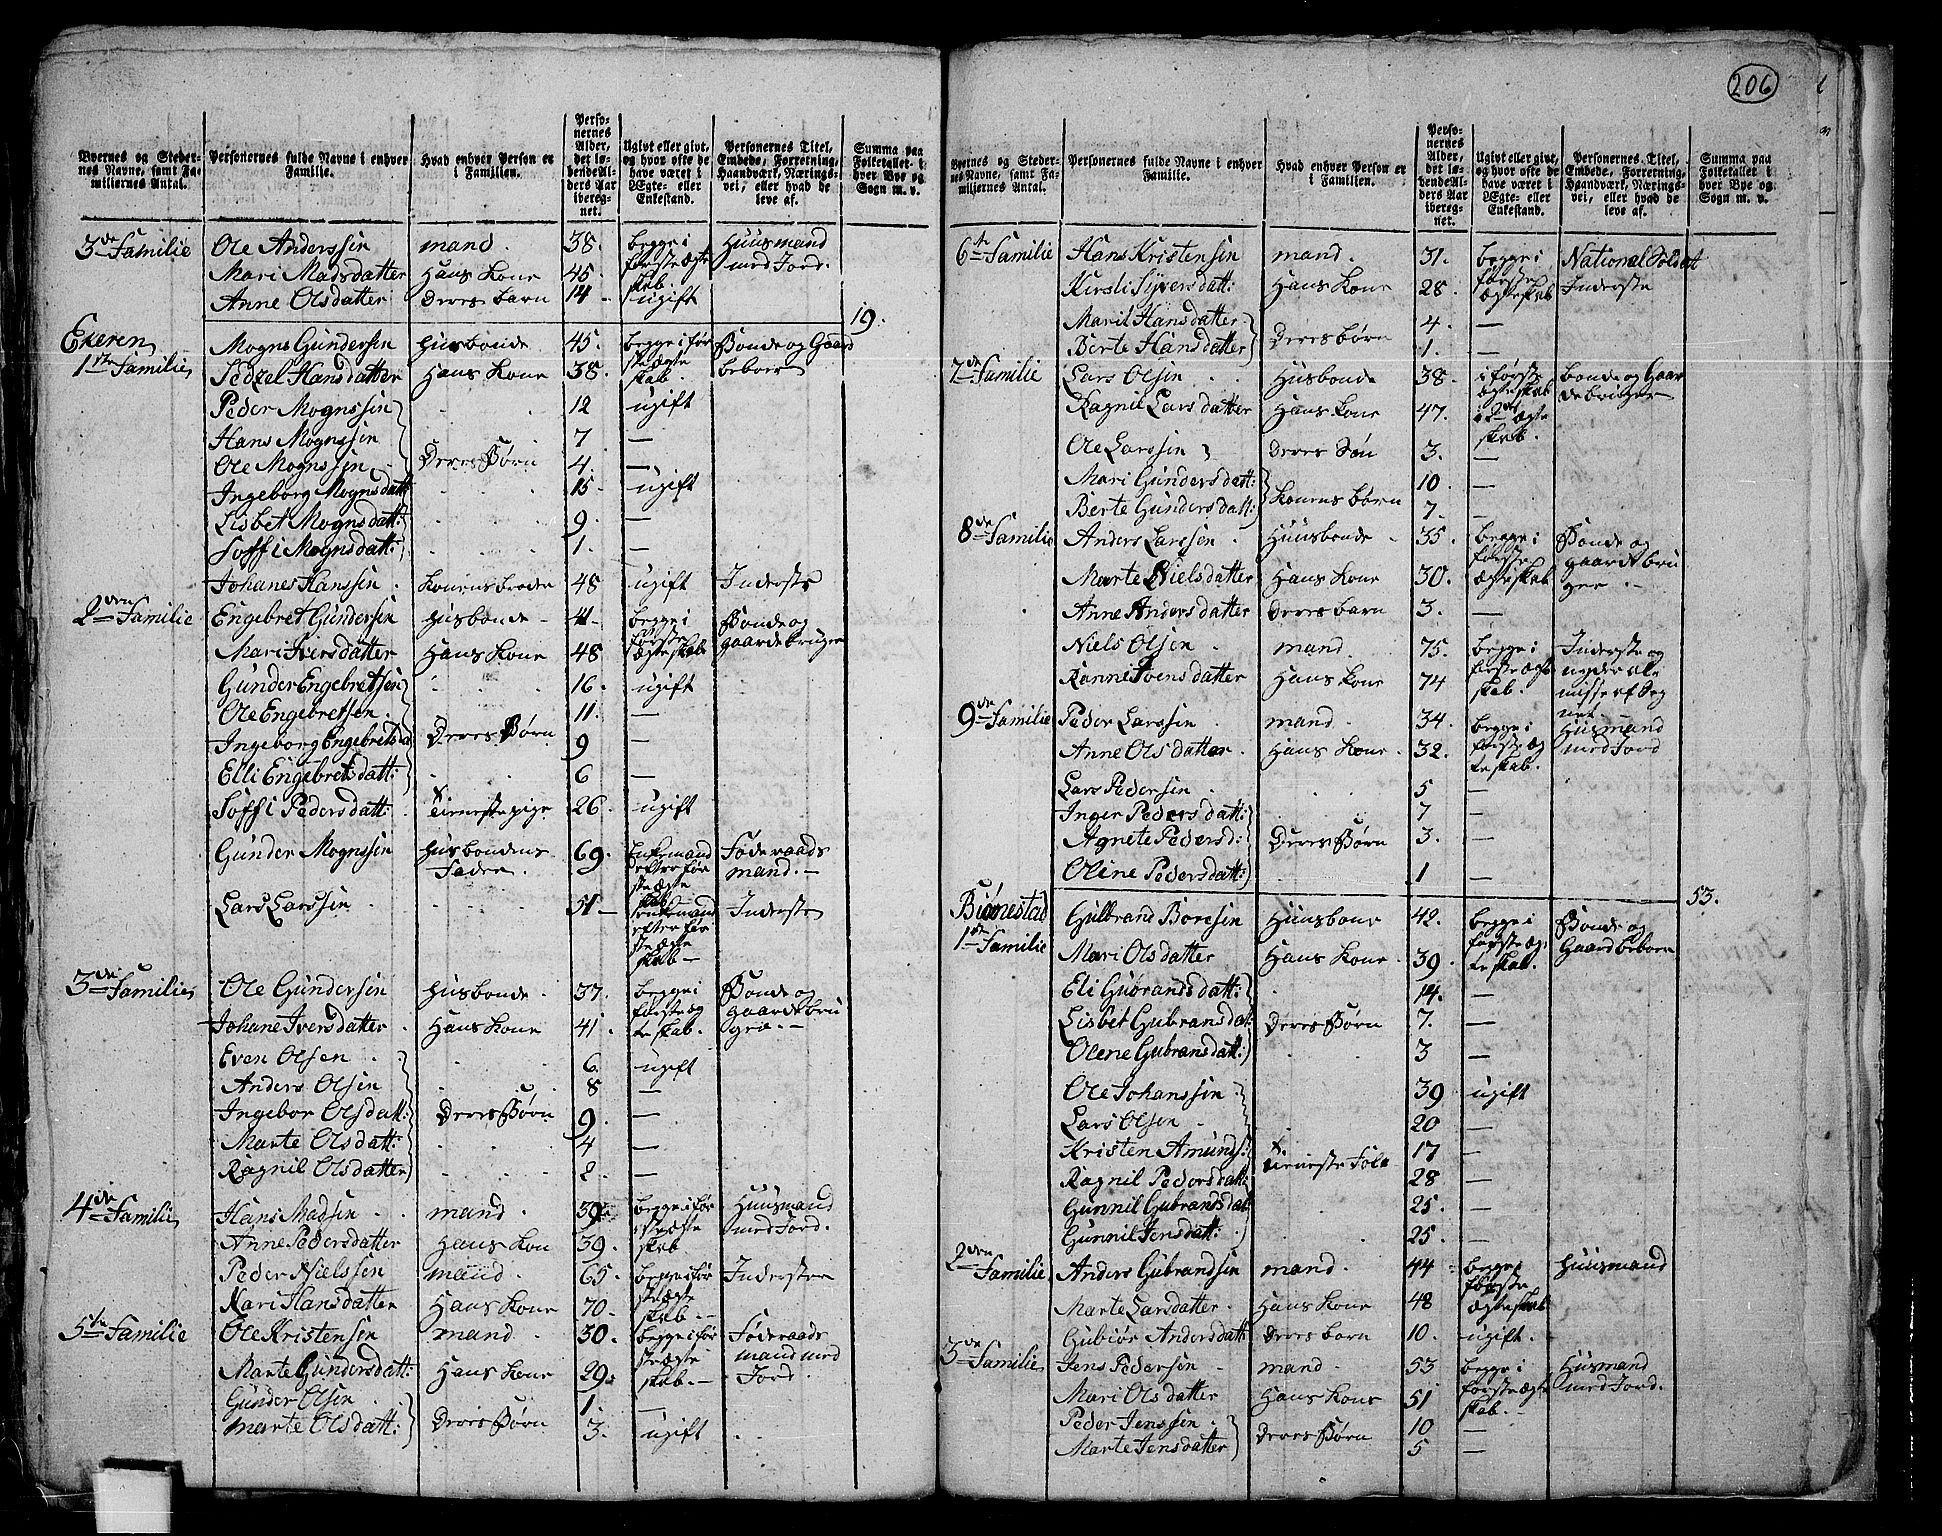 206
Byernes og Stedernes Navne, samt Familiernes Antal.
Personernes fulde Navne i enhver Familie.
Hvad enhver Person er i Familien.
Personernes Alder, det løbende Alders Aar iberegnet.
Ugivt eller givt, og hvor ofte de have været i Ægte- eller Enkestand.
Personernes Titel, Embede, Forretning, Haandværk, Næringsvei, eller hvad de leve af.
Summa paa Folketallet i hver Bye og Sogn m. v.
3de Familie Ole Anderssin mand. 38. begge i første ægteskab Huusmand med Jord.
Mari Madsdatter Hans Kone 45.
Anne Olsdatter Deres barn 14 ugift
19.
Ekeren
1ste Familie Mogns Gundersin Husbonde 45. begge i første ægteskab Bonde og Gaard beboer
Hans datter Hans Kone 38.
Peder Mognssin 12 ugift
Hans Mognssin 7 —
Ole Mognssin Deres Børn 4. —
Ingeborg Mognsdatt: 15 ugift
Lisbet Mognsdatt: 9. —
Soffi Mognsdatt: 1. —
Johanes Hanssin Konens broder 48 ugift Inderste
2den Familie Engebret Gundersin Husbonde 41 begge i første ægteskab Bonde og gaardebruger
Mari Iversdatter Hans Kone 48
Gunder Engebretsen 16. ugift
Ole Engebretsen 11. —
Ingeborg Engebretsd Deres Børn 9 —
Elli Engebretsdatt: 6 —
Soffi Pedersdatt: Tienestepige 26. ugift
Gunder Mognssin Husbondens Fader 69. Enkemand efter første ægteskab Føderaads mand.
Lars Larssin 51 enkemand efter første ægteskab Inderste
3de Familie Ole Gundersin Husbonde 37. begge i første ægteskab. Bonde og gaardebru
Johane Iversdatter Hans Kone 41.
Even Olsen 6. ugift
Anders Olsin 8 —
Ingebor Olsdatt: Deres Børn 9. —
Marte Olsdatt: 4 —
Ragnil Olsdatter 2. —
4de Familie Hans Madsin mand. 39. begge i første ægteskab Huusmand med Jord.
Anne Pedersdatter Hans Kon 39.
Peder Nielssen mand. 65. begge i første ægteskab Inderster
Kari Hansdatter Hans Kone 70.
5te Familie Ole Kristensin mand. 30. begge i første ægteskab. Føderaads mand med Jord.
Marte Gundersdatt: Hans Kone 29.
Gunder Olsin 1. —
Marte Olsdatt: Deres Børn 3. ugift
Byernes og Stedernes Navne, samt Familiernes Antal.
Personernes fulde Navne i enhver Familie.
Hvad enhver Person er i Familien.
Personernes Alder, det løbende Alders Aar iberegnet.
Ugivt eller givt, og hvor ofte de have været i Ægte- eller Enkestand.
Personernes Titel, Embede, Forretning, Haandværk, Næringsvei, eller hvad de leve af.
Summa paa Folketallet i hver Bye og Sogn m. v.
6te Familie Hans Kristensin mand. 31. begge i første ægteskab National Soldat Inderste
Kirsti Syversdatt: Hans Kone 28.
Maril Hansdatter 4. —
Berte Hansdatter Deres børn 1. —
7de Familie Lars Olsin Husbonde 38. i første ægteskab bonde og Gaardebruger
Ragnil Larsdatter Hans kone 47. i 2det ægteskab.
Ole Larssin Deres Søn 3. —
Mari Gundersdatt: 10. —
Berte Gundersdatt: Konens børn 7. —
8de Familie Anders Larssen Huusbonde 35. begge i første ægteskab Bonde og gaardebruger
Marte Nielsdatter Hans Kone 30.
Anne Andersdatter Deres barn 3. —
Niels Olsin mand. 75. begge i første ægteskab. Inderste og nyder almisse af Sognet.
Ranne Svensdatter Hans kone 74
9de Familie Peder Larssin mand. 34. begge i første ægteskab. Husmand med Jord
Anne Olsdatter Hans Kone 32.
Lars Pedersin 5 —
Inger Pedersdatt: 7 —
Agnete Pedersd: Deres Børn 3. —
Oline Pedersdatt: 1 —
53.
Biønestad
1ste Familie Gulbrand Boresin Huusbone 42. begge i første ægteskab. Bonde og Gaardbeboer
Mari Olsdatter Hans Kone 39.
Eli Gubrandsdatt: 14. —
Lisbet Gubransdat: Deres Børn 7. —
Olene Gubransdatt: 3 —
Ole Johanssin 39 ugift
Lars Olsen 20 —
Kristen Amunds: Tieneste Folk 17 —
Ragnil Pedersdatt 28 —
Gunnil Gubrandsdat 25. —
Gunnil Jensdatt: 25. —
2den Familie Anders Gubrandsin mand. 44 begge i første ægteskab Huusmand
Marte Larsdatter Hans Kone 48
Gubiør Andersdatt: Deres barn 10. ugift.
3de Familie Jens Pedersin mand. 53 begge i første ægteskab. Husmand med Jord.
Mari Olsdatter Hans Kone 51
Peder Jenssin Deres Børn 10 —
Marte Jensdatter 5 —